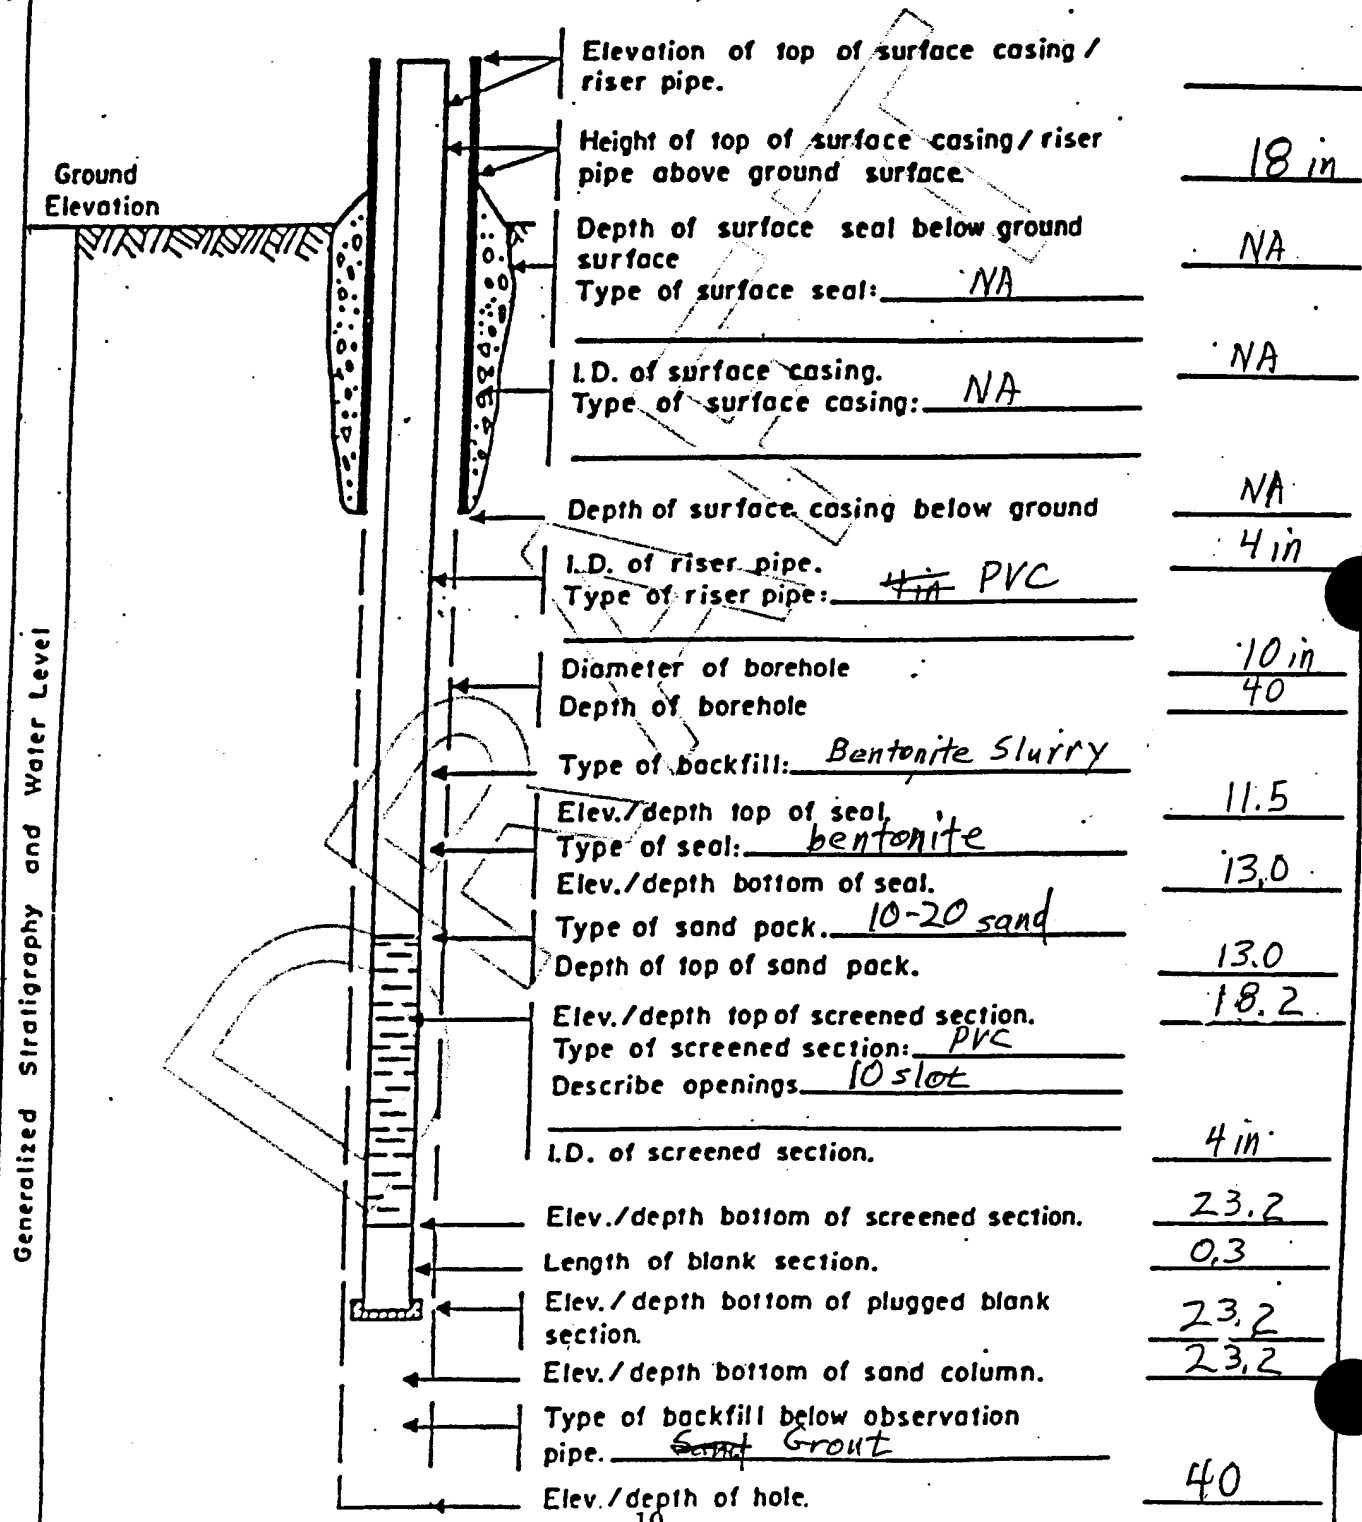 Elevation of top of surface casing /
riser pipe.
Height of top of surface casing / riser
pipe above ground surface 18 in
Ground
Elevation
Depth of surface seal below ground
surface NA
Type of surface seal: NA
I.D. of surface casing. NA
Type of surface casing: NA
Depth of surface casing below ground NA
I.D. of riser pipe. 4 in
Type of riser pipe: 4in PVC
Diameter of borehole 10 in
Depth of borehole 40
Type of backfill: Bentonite Slurry
Elev./depth top of seal. 11.5
Type of seal: bentonite
Elev./depth bottom of seal. 13.0
Type of sand pack. 10-20 sand
Depth of top of sand pack. 13.0
Elev./depth top of screened section. 18.2
Type of screened section: PVC
Describe openings 10 slot
I.D. of screened section. 4 in
Elev./depth bottom of screened section. 23.2
Length of blank section. 0.3
Elev./depth bottom of plugged blank
section. 23.2
Elev./depth bottom of sand column. 23.2
Type of backfill below observation
pipe. Sand Grout
Elev./depth of hole. 40
19
Generalized Stratigraphy and Water Level
DRAFT